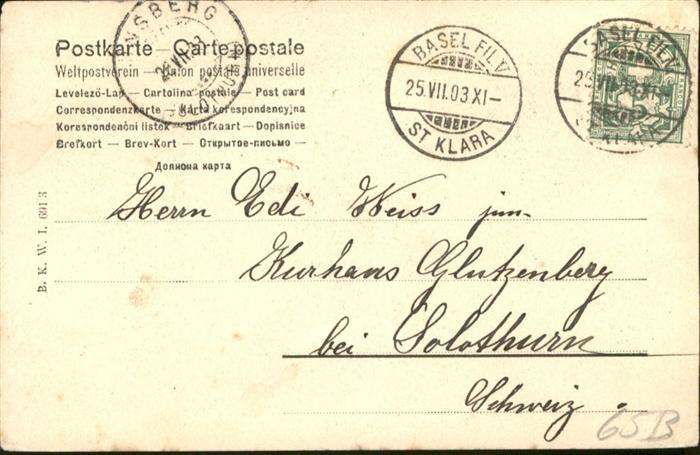 Postkarte — Carte postale
Weltpostverein — Union postale universelle
Levelező-Lap — Cartolina postale — Post card
Correspondenzkarte — Karta korespondencyjna
Korespondenční listek — Briefkaart — Dopisnice
Brefkort — Brev-Kort — Открытое-письмо —
Дописна карта
BASEL FIL. V
25.VII.03 XI—
ST KLARA
BASEL FIL. V
25.VII. XI—
NSBERG
VII.03
Herrn Edi Weiss jun.
Kurhaus Glutzenberg
bei Solothurn
Schweiz.
B. K. W. I. 691-3
65B